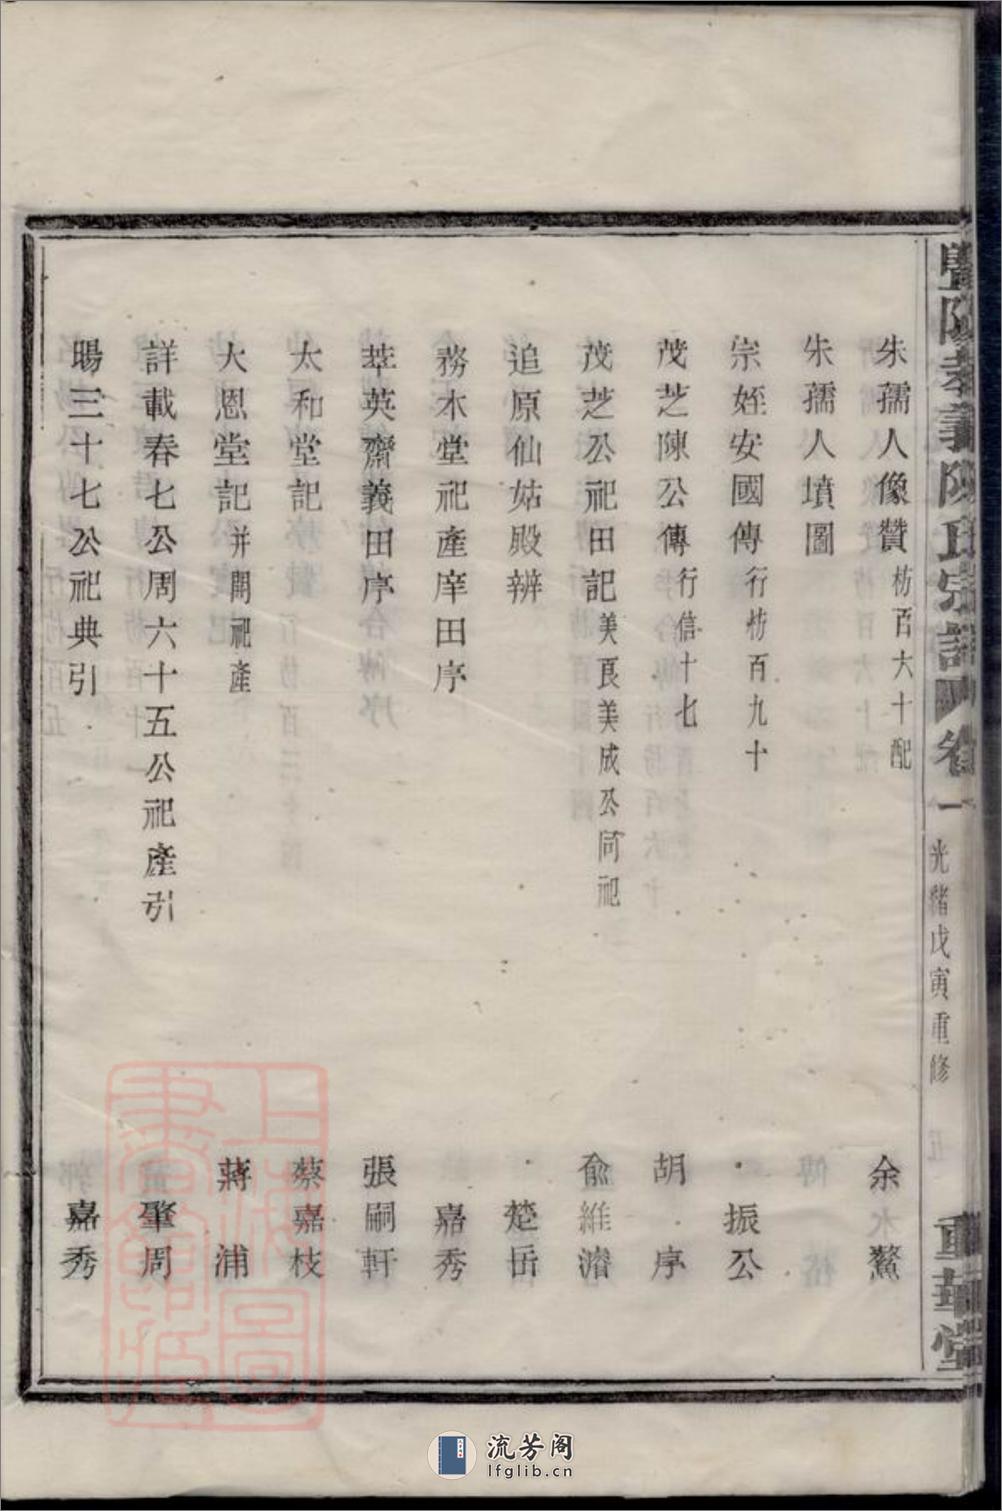 暨陽孝義陳氏宗譜 卷一 光緒戊寅重修 五 重華堂
朱孺人像贊 枋百六十配 余水鰲
朱孺人墳圖
宗姪安國傳 行枋百九十 振公
茂芝陳公傳 行信十七 胡序
茂芝公祀田記 美良美成公同祀 俞維濬
追原仙姑殿辨 楚岳
務木堂祀產庠田序 嘉秀
萃英齋義田序 張嗣軒
太和堂記 蔡嘉枝
大恩堂記 并開祀產 蔣浦
詳載春七公周六十五公祀產引 肇周
暘三十七公祀典引 嘉秀
上海圖書館藏
流芳阁
lfglib.cn